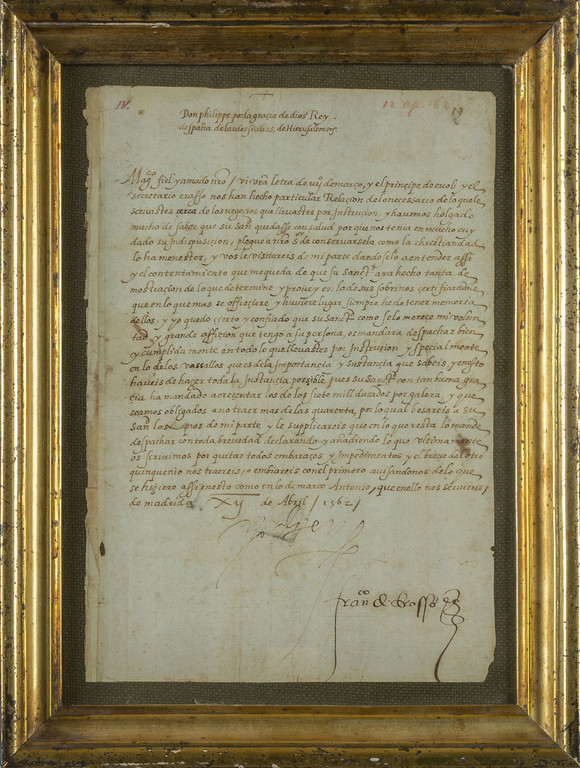 IV.
12 ap. 62
19
Don philippe por la gracia de dios Rey
despaña, de las dos sicilias, de Hierusalem etc.
Mag.co fiel y amado nro / vi vra letra de vij de março, y el principe de evoli y el
secretario erasso nos han hecho particular Relaçion de lo necessario de lo que le
scrivistes cerca de los negocios que llevastes por Instrucion, y havemos holgado
mucho de saber que su San.d quedasse con salud por que nos tenia en mucho cuy
dado su Indisposicion, plegue a nro s.r de conservarsela como la christiandad
lo ha menester, y vos le visitareis de mi parte dandoselo a entender assi
y el contentamiento que me queda de que su Sanct.d aya hecho tanta de
mostracion de lo que determine y provey en lo de sus sobrinos certificandole
que en lo que mas se offresciere y huviere lugar siempre he de tener memoria
dellos, y yo quedo cierto y confiado que su Sanct.d como se lo merece mi volun
tad y grande affiction que tengo a su persona, os mandara despachar bien
y cumplidamente en todo lo que llevastes por Instrucion y specialmente
en lo de los vassallos que es de la importancia y sustancia que sabeis y en esto
haveis de hazer toda la Instancia possible, pues su Sanct.d con tan buena gra
cia ha mandado acrescentar los de los siete mill ducados por galera, y que
seamos obligados a no traer mas de las quarenta, por lo qual besareis a su
San.d los pies de mi parte y le supplicareis que en lo que resta lo mande
despachar con toda brevedad declarando y añadiendo lo que ultimamente
os scrivimos por quitar todos embaraços y Impedimentos y el breve del otro
quinquenio nos traereis, o embiareis con el primero avisandonos de lo que
se hiziere assi en esto como en lo de marco Antonio, que en ello nos servireis /
de madrid a XIJ de Abril / 1562 /
Yo el Rey
fran.co de Erasso